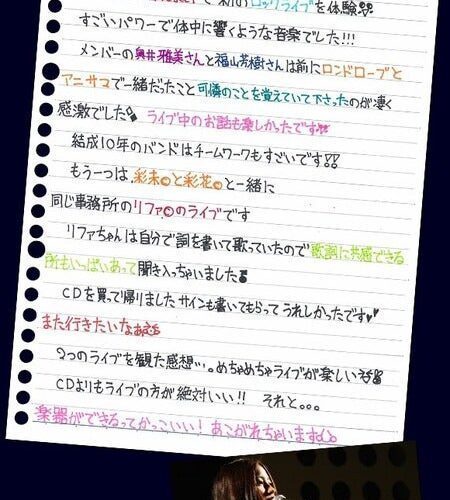 初のロックライブを体験
すごいパワーで体中に響くような音楽でした!!!
メンバーの奥井雅美さんと福山芳樹さんは前にロンドローブと
アニサマで一緒だったこと可憐のことを覚えていて下さったのが凄く
感激でした ライブ中のお話も楽しかったです
結成10年のバンドはチームワークもすごいです!!
もう一つは、彩未と彩花と一緒に
同じ事務所のリファのライブです
リファちゃんは自分で詞を書いて歌っていたので歌詞に共感できる
所もいっぱいあって聞き入っちゃいました
CDを買って帰りました サインも書いてもらってうれしかったです
また行きたいなぁ
2つのライブを観た感想…。めちゃめちゃライブが楽しい
CDよりもライブの方が絶対いい!! それと。。。
楽器ができるってかっこいい!あこがれちゃいます